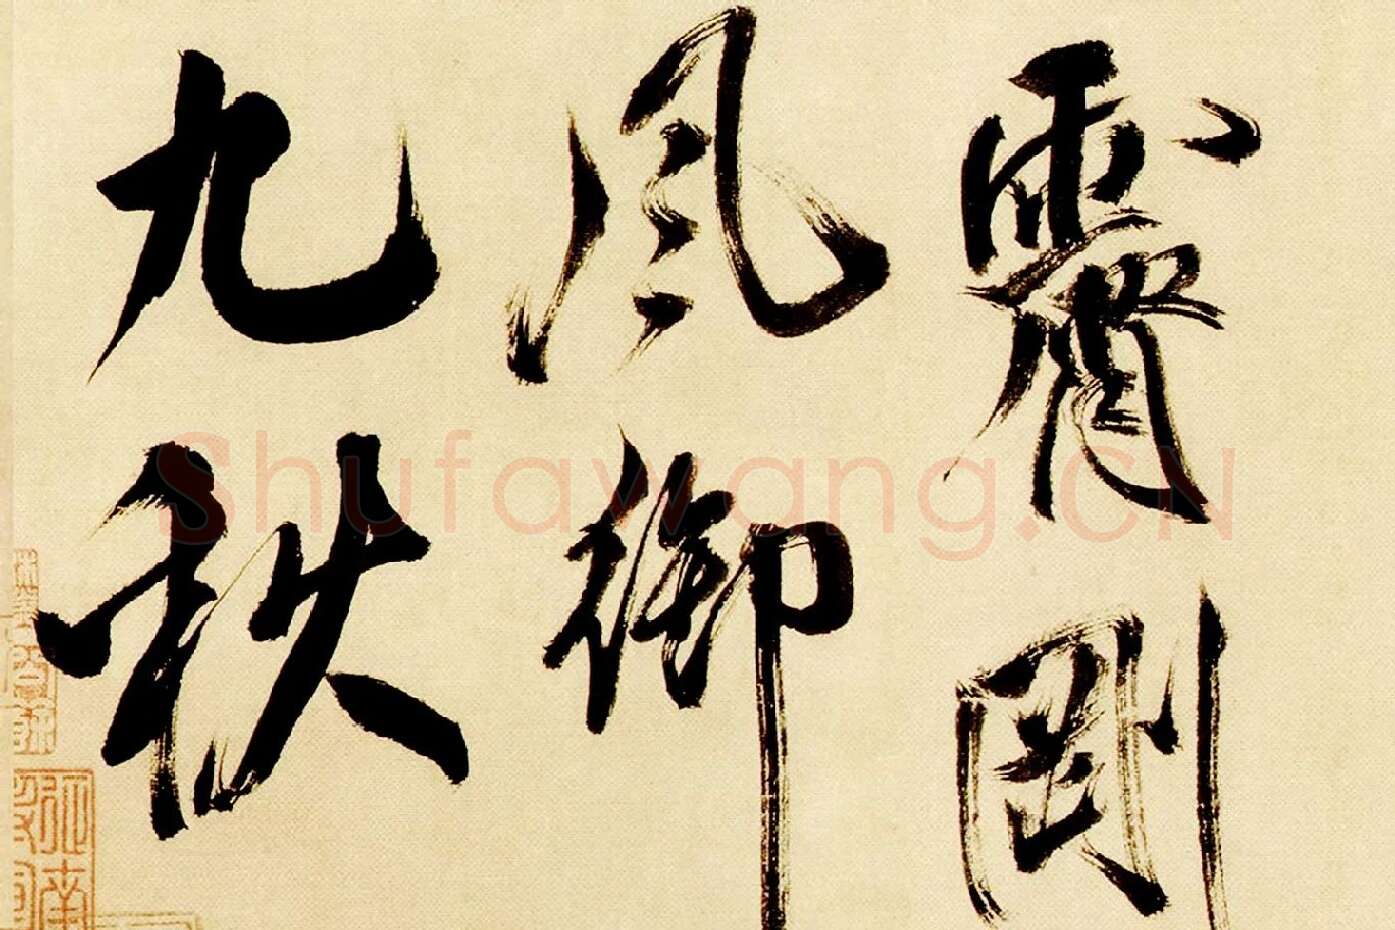 霽剛
風御
九秋
Shufawang.CN